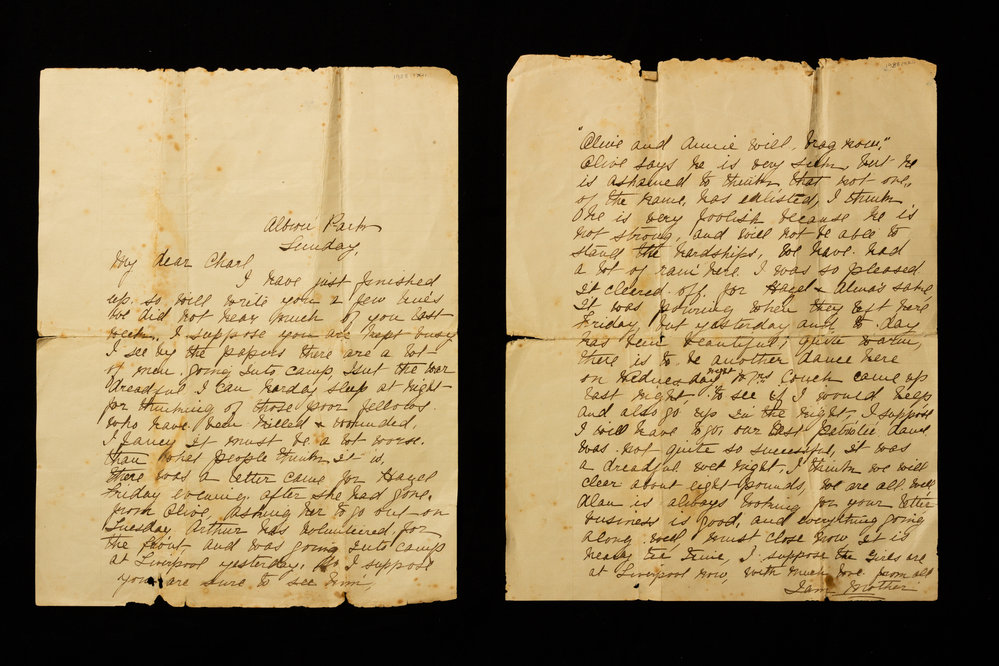 Albion Park
Sunday,
My dear Charl
I have just finished
up so will write you a few lines
we did not hear much of you last
week, I suppose you are kept busy
I see by the papers there are a lot
of men going into camp, Isnt the war
dreadful I can harday sleep at night
for thinking of those poor fellows
who have been killed & wounded,
I fancy it must be a lot worse
than what people think it is,
there was a letter came for Hazel
Friday evening after she had gone,
from Olive, asking her to go out on
Tuesday Arthur has volunteered for
the front and was going into camp
at Liverpool yesterday. So I suppose
you are sure to see him,
"Olive and Annie will brag now,"
Olive says he is very sick but he
is ashamed to think that not one,
of the name, has enlisted, I think
he is very foolish because he is
not strong, and will not be able to
stand the hardships, We have had
a lot of rain here I was so pleased
it cleared off for Hazel & Alma's sake
It was pouring when they left here
Friday, but yesterday and to day
has been beautiful, quite warm,
there is to be another dance here
on Wednesday night Mrs Couch came up
last night to see if I would help
and also go up in the night, I suppose
I will have to go, our last Patriotic dance
was not quite so successful, it was
a dreadful wet night, I think we will
clear about eight pounds, We are all well
Alan is always looking for your letter
business is good, and everything going
along well must close now it is
nearly tea time, I suppose the girls are
at Liverpool now, with much love from all
I am Mother